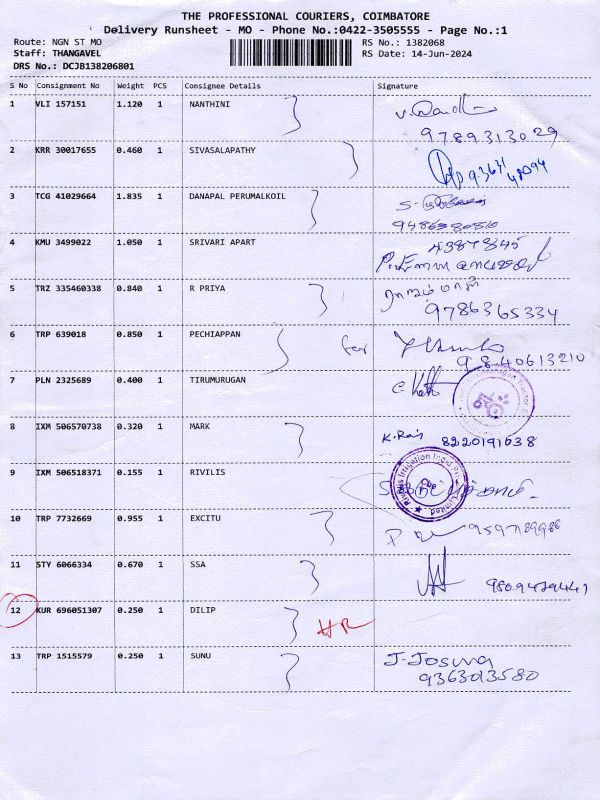 THE PROFESSIONAL COURIERS, COIMBATORE
Delivery Runsheet - MO - Phone No.:0422-3505555 - Page No.:1
Route: NGN ST MO RS No.: 1382068
Staff: THANGAVEL RS Date: 14-Jun-2024
DRS No.: DCJB138206801
S No Consignment No Weight PCS Consignee Details Signature
1 VLI 157151 1.120 1 NANTHINI
9789313029
2 KRR 30017655 0.460 1 SIVASALAPATHY
3 TCG 41029664 1.835 1 DANAPAL PERUMALKOIL
9486380810
4 KMU 3499022 1.050 1 SRIVARI APART
5 TRZ 335460338 0.840 1 R PRIYA
9786365334
6 TRP 639018 0.850 1 PECHIAPPAN for
9840613210
7 PLN 2325689 0.400 1 TIRUMURUGAN
8 IXM 506570738 0.320 1 MARK
K.Raj 8220191038
9 IXM 506518371 0.155 1 RIVILIS
Rivulis Irrigation India Pvt. Limited
10 TRP 7732669 0.955 1 EXCITU
11 STY 6066334 0.670 1 SSA
12 KUR 696051307 0.250 1 DILIP HR
13 TRP 1515579 0.250 1 SUNU J-Josuva
9363013580